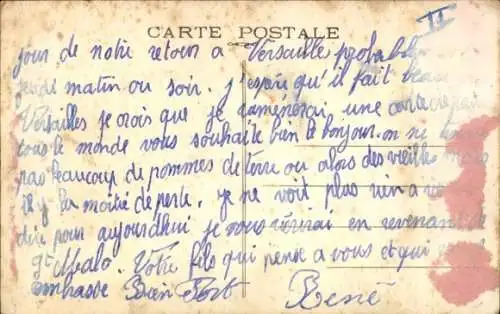 CARTE POSTALE
II
jour de notre retour a Versaille probable
jeudi matin ou soir. j'espère qu'il fait beau
Versailles je crois que je ramenerai une
tous le monde vous souhaite bien le bonjour. on ne
pas beaucoup de pommes de terre ou alors des vieilles mais
il y la moitié de perte. je ne voit plus rien a vous
dire pour aujourdhui je vous écrirai en revenant de
St Malo. Votre fils qui pense a vous et qui vous
embrasse Bien Fort René